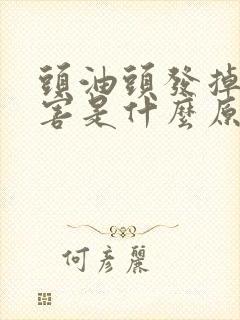 頭油頭發掉
害是什麼原
何彥麗